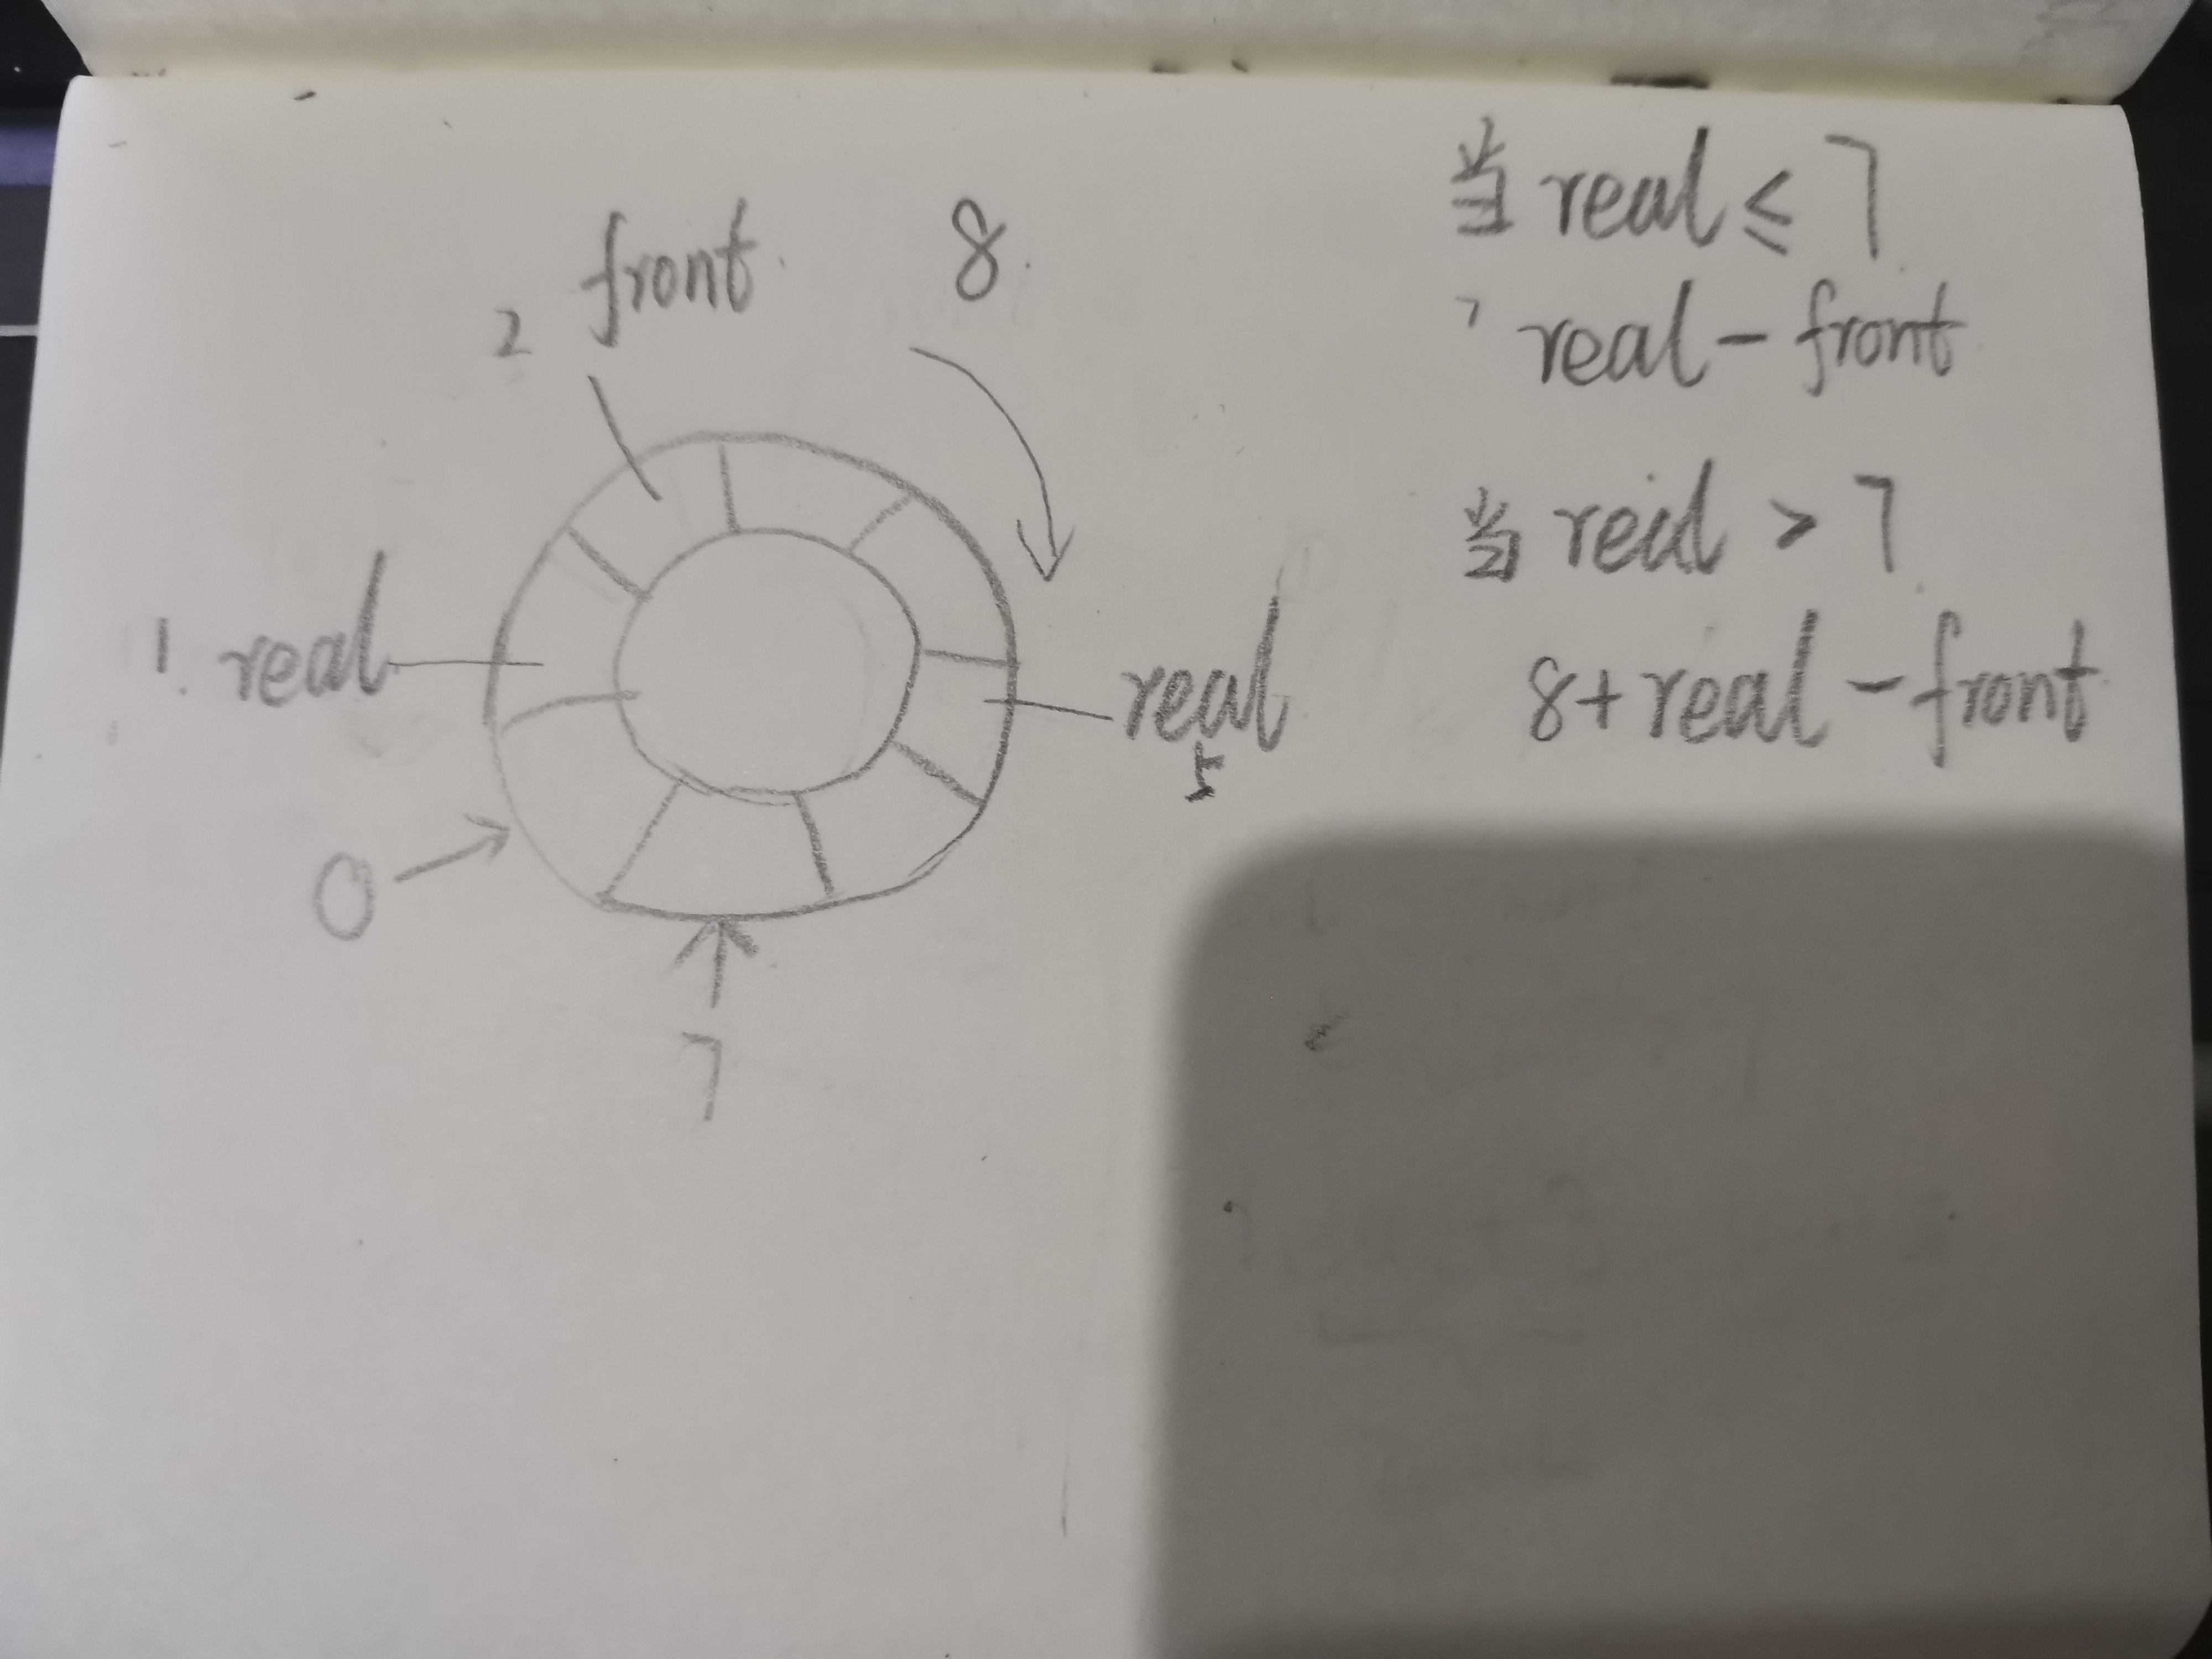 front 8
2
1. real
real
5
0
7
当 real ≤ 7
real - front
当 real > 7
8 + real - front